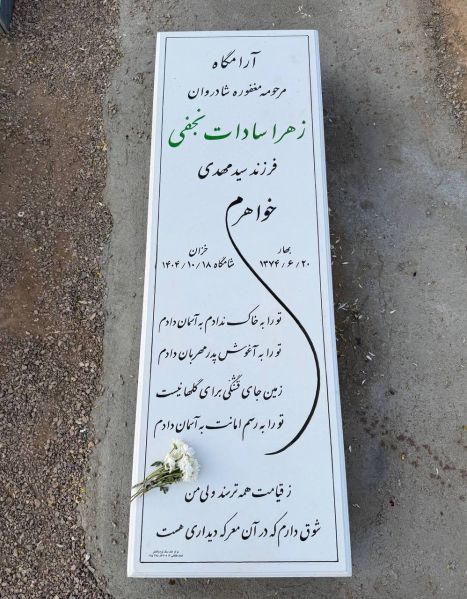 آرامگاه
مرحومه مغفوره شادروان
زهرا سادات نجفی
فرزند سید مهدی
خواهرم
بهار
۱۳۷۴/۶/۲۰
خزان
شامگاه ۱۴۰۴/۱۰/۱۸
تو را به خاک ندادم به آسمان دادم
تو را به آغوش پدر مهربان دادم
زمین جای قشنگی برای گلها نیست
تو را به رسم امانت به آسمان دادم
ز قیامت همه ترسند ولی من
شوق دارم که در آن معرکه دیداری هست